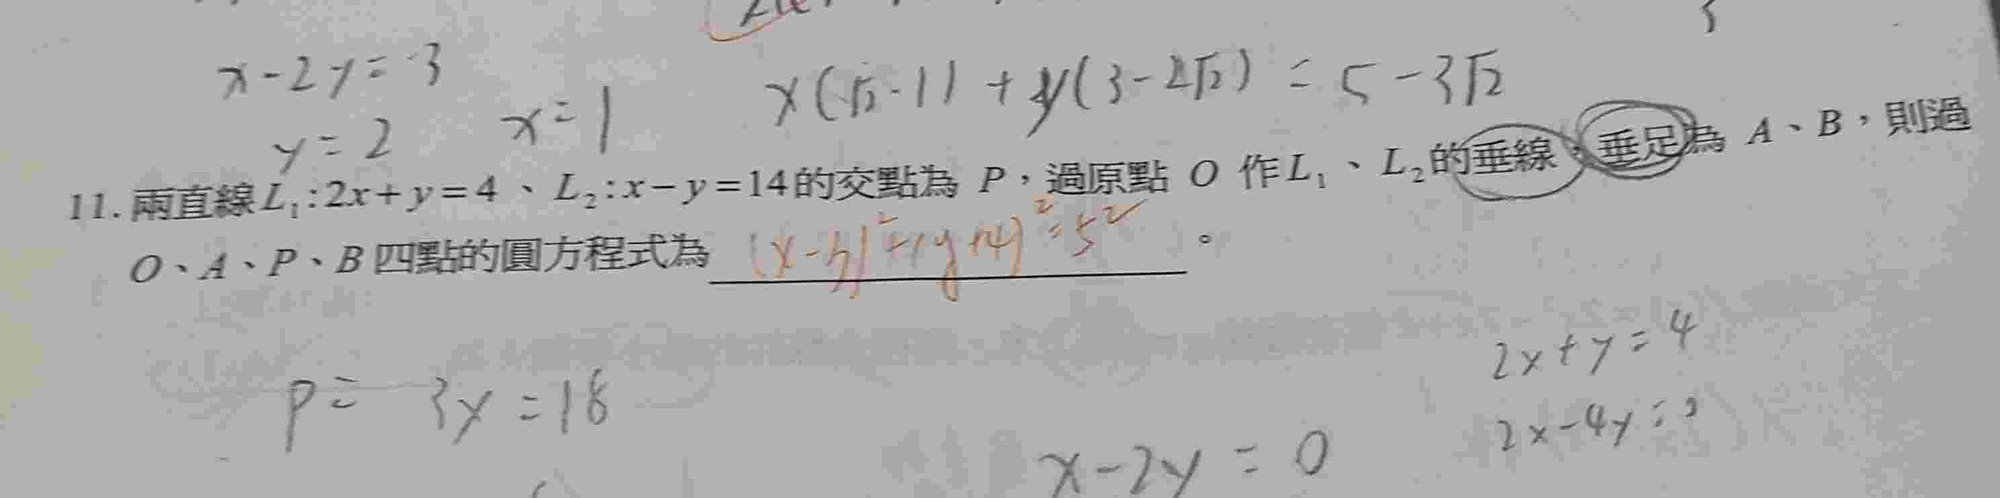 x-2y=3
y=2
x=1
x(√2-1)+y(3-2√2)=5-3√2
11. 兩直線 L₁:2x+y=4、L₂:x-y=14的交點為 P,過原點 O 作L₁、L₂的垂線,垂足為 A、B,則過
O、A、P、B 四點的圓方程式為 (x-3)²+(y+4)²=5² 。
P= 3x=18
2x+y=4
2x-4y=
x-2y=0